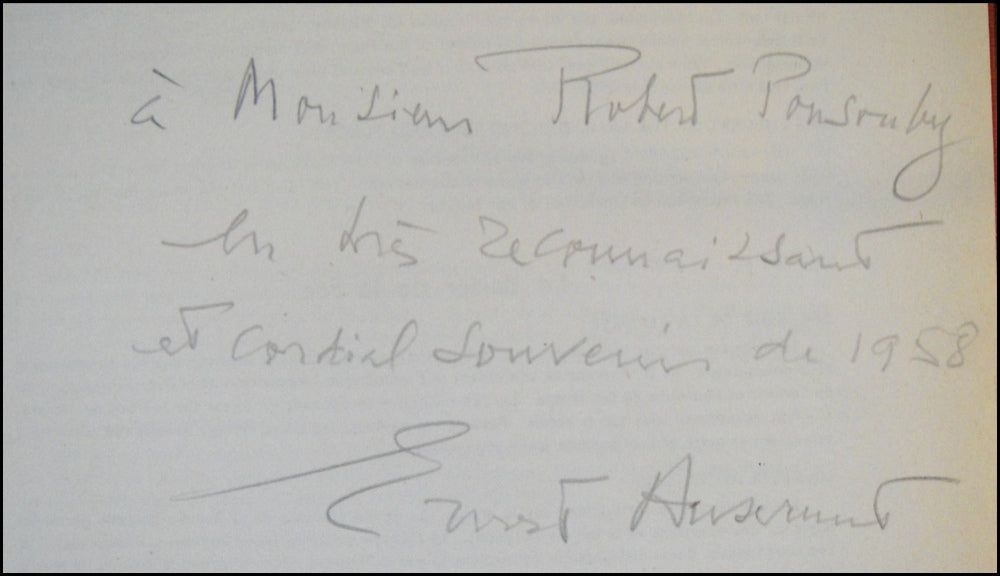 à Monsieur Robert Ponsonby
en très reconnaissant
et cordial souvenir de 1958
Ernest Ansermet